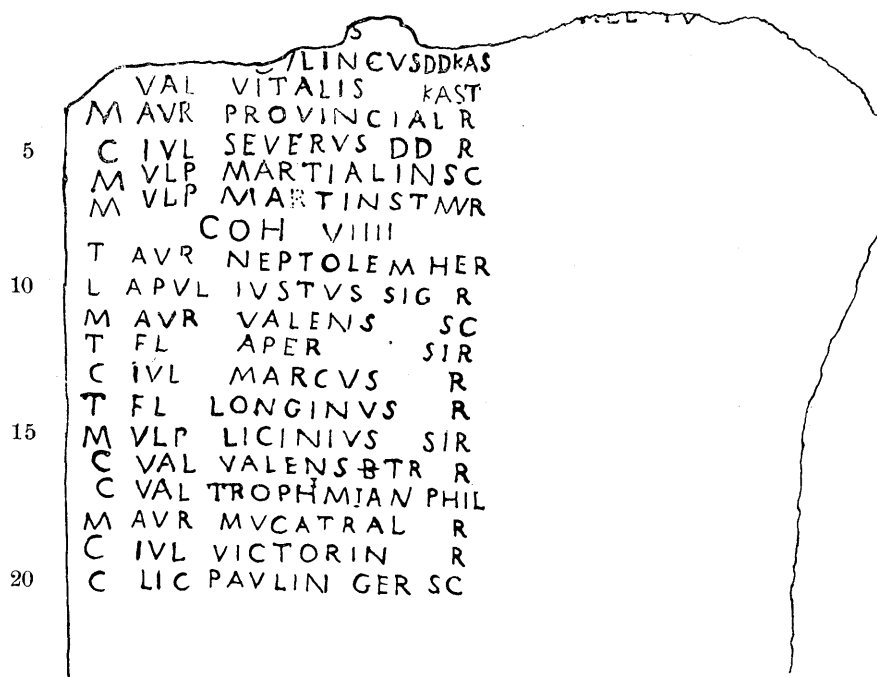 S
LINCVS DD KAS
VAL VITALIS KAST
M AVR PROVINCIAL R
5 C IVL SEVERVS DD R
M VLP MARTIALIN SC
M VLP MARTINS TMVR
COH VIIII
T AVR NEPTOLEM HER
10 L APVL IVSTVS SIG R
M AVR VALENS SC
T FL APER SIR
C IVL MARCVS R
T FL LONGINVS R
15 M VLP LICINIVS SIR
C VAL VALENS BTR R
C VAL TROPHIMIAN PHIL
M AVR MVCATRAL R
C IVL VICTORIN R
20 C LIC PAVLIN GER SC